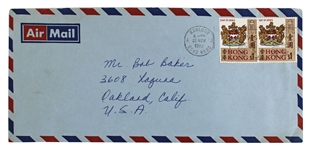 Air Mail
Mr Bob Baker
3608 Laguna
Oakland, Calif.
U.S.A.
HONG KONG
HONG KONG